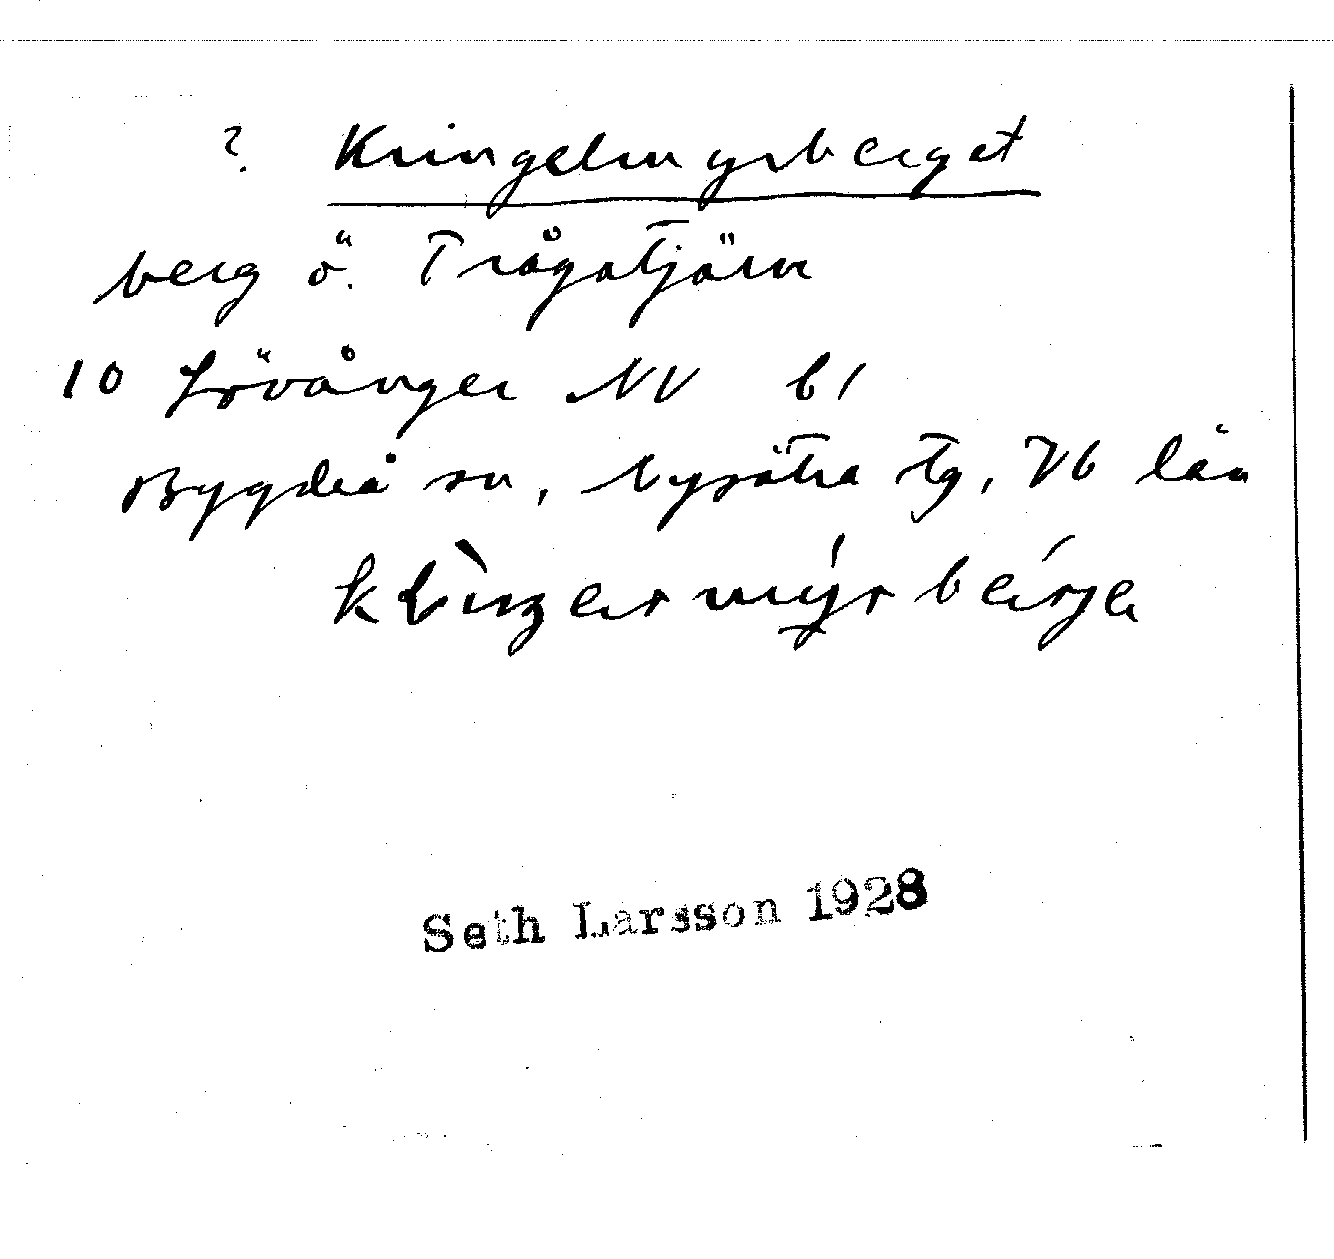 ? Kringelmyrberget
berg ö. Trågatjärn
10 Lövånger NV b1
Bygdeå sn, Nysätra tg, Vb län
Seth Larsson 1928